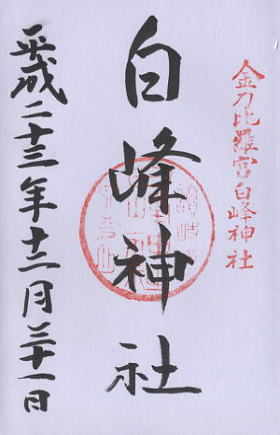 金刀比羅宮白峰神社
白峰神社
平成二十三年十二月三十一日